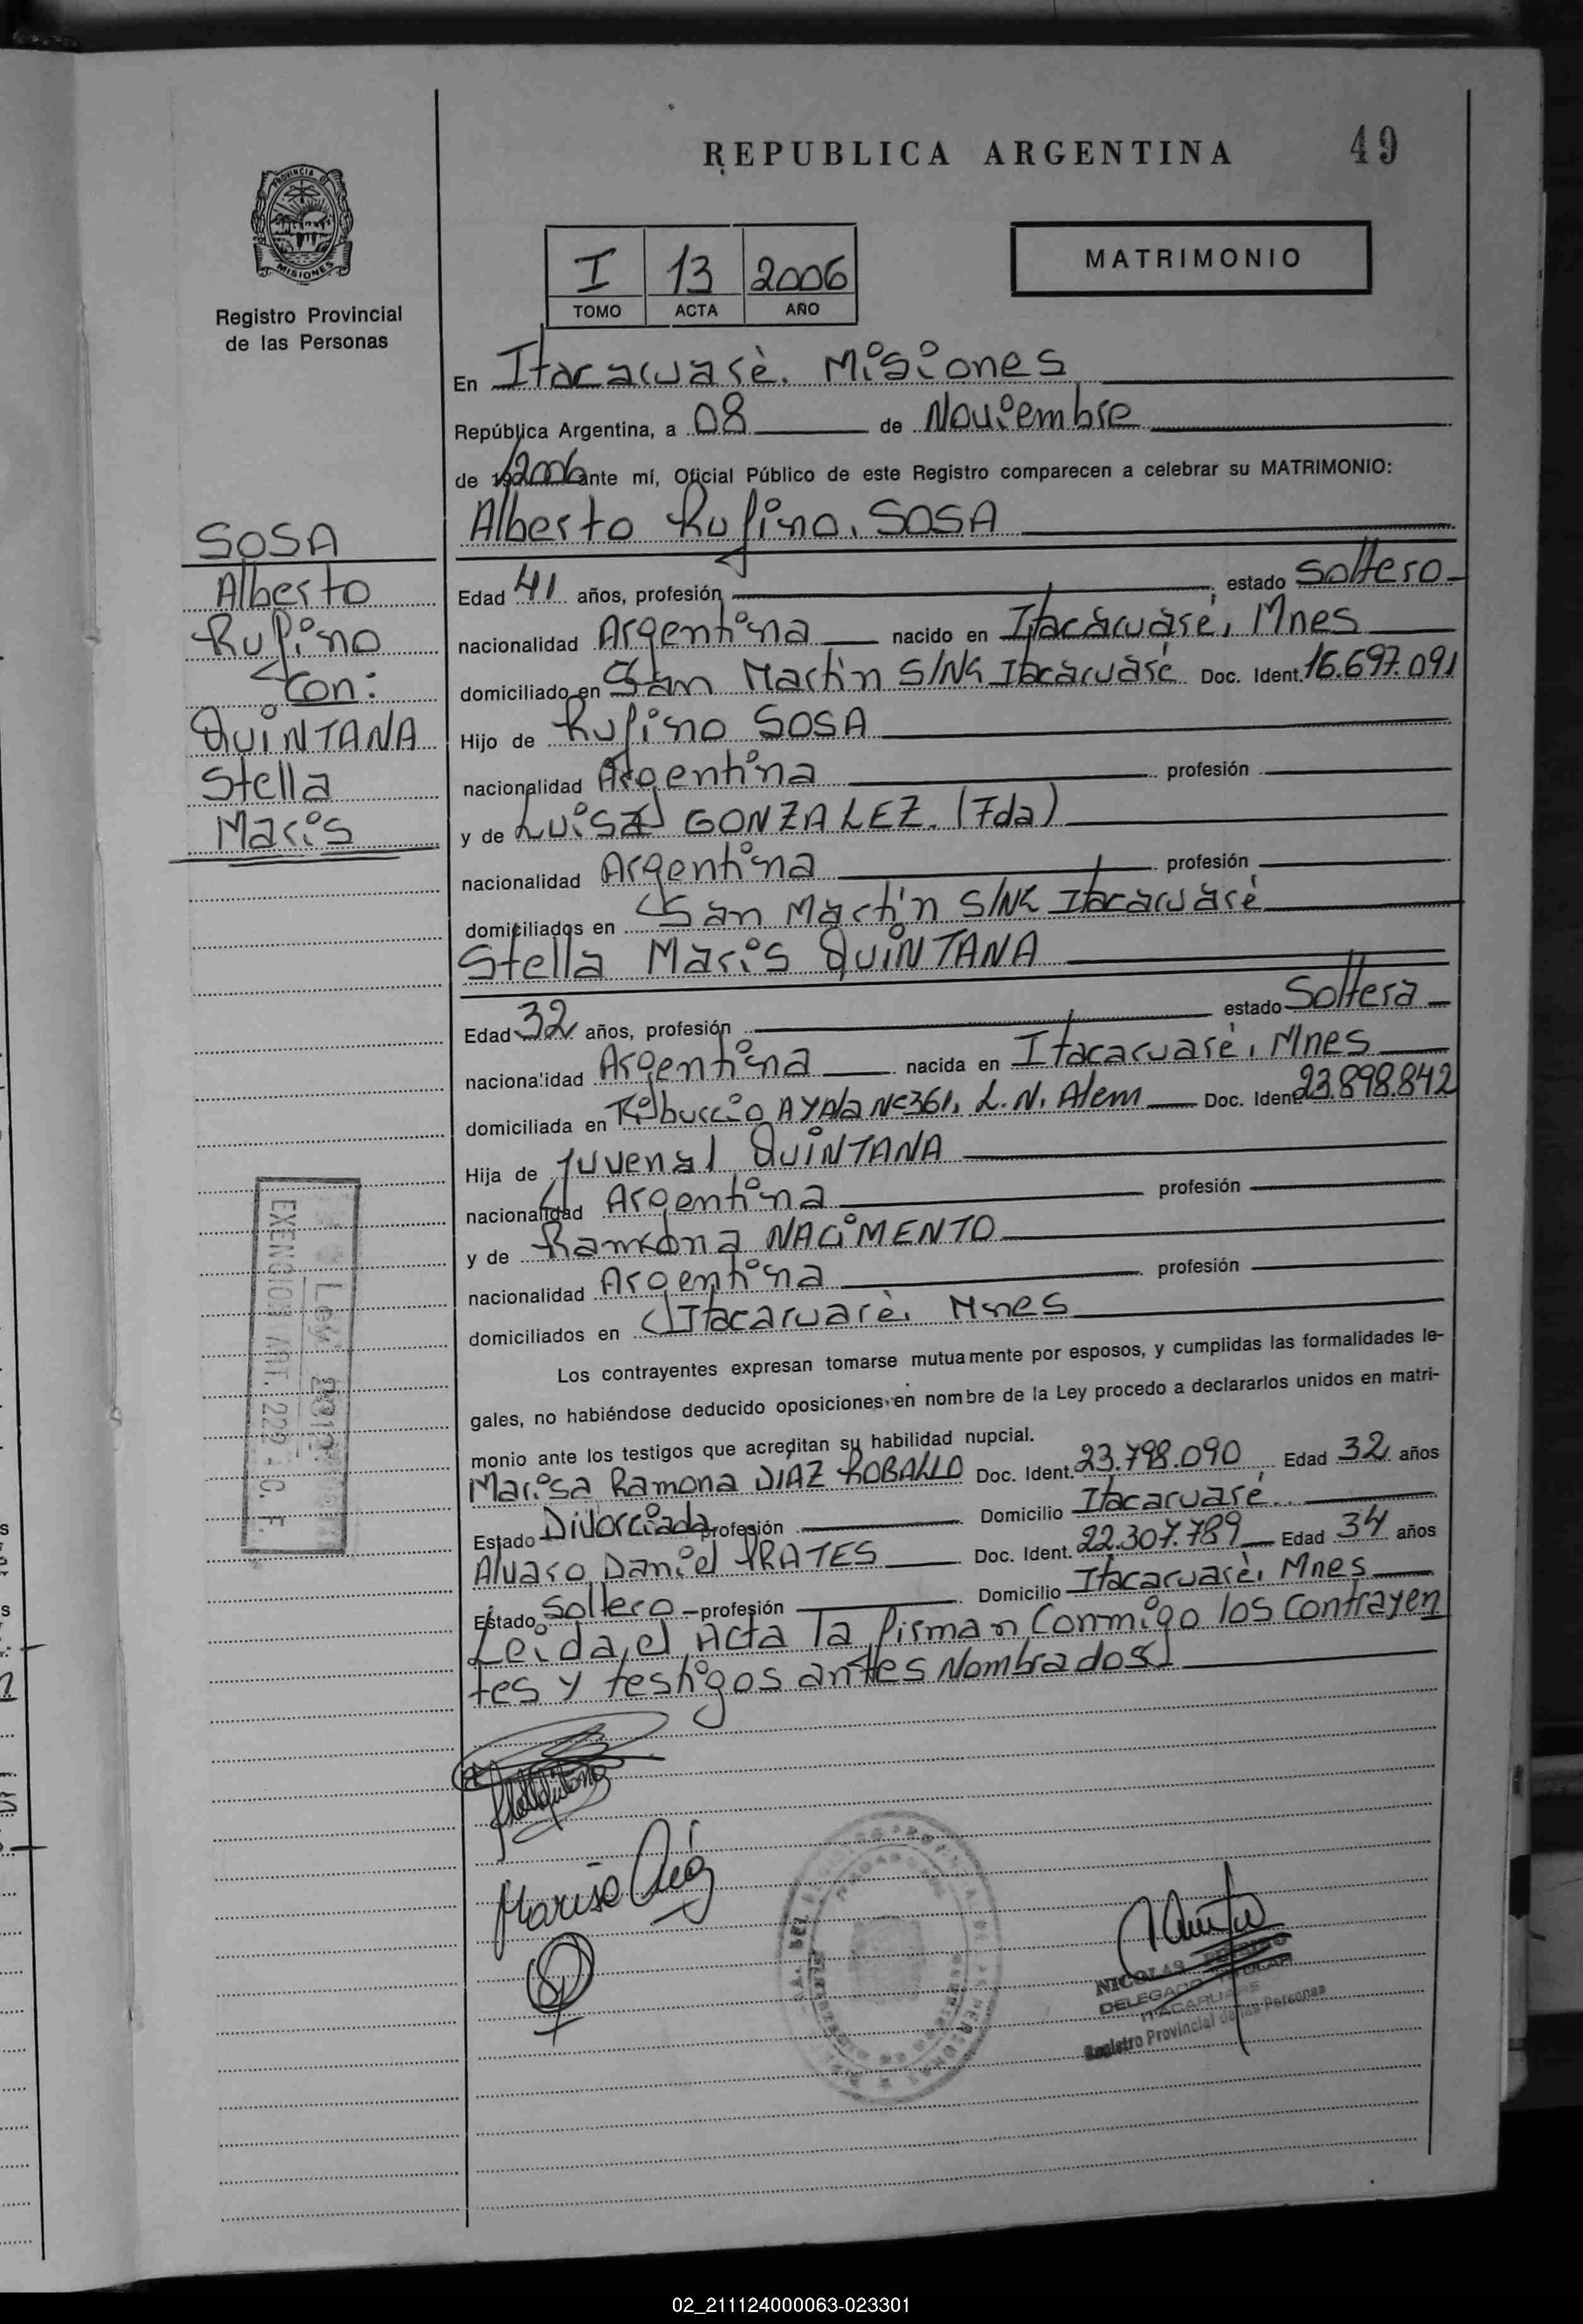 REPUBLICA ARGENTINA
49
PROVINCIA D
MISIONES
Registro Provincial
de las Personas
I 13 2006
TOMO ACTA AÑO
MATRIMONIO
En Itacaruarè. Misiones
República Argentina, a 08 de Noviembre
de 19 2006 ante mí, Oficial Público de este Registro comparecen a celebrar su MATRIMONIO:
Alberto Rufino. SOSA
Edad 41 años, profesión estado Soltero
nacionalidad Argentina nacido en Itacaruaré, Mnes
domiciliado en San Martin S/Nº Itacaruaré Doc. Ident. 16.697.091
Hijo de Rufino SOSA
nacionalidad Argentina profesión
y de Luisa GONZALEZ. (Fda)
nacionalidad Argentina profesión
domiciliados en San Martin S/Nº Itacaruarè
Stella Maris QUiNTANA
Edad 32 años, profesión estado Soltera
nacionalidad Argentina nacida en Itacaruarè, Mnes
domiciliada en Tiburcio AYAla Nº 361, L.N. Alem Doc. Ident. 23.898.842
Hija de Juvenal QUiNTANA
nacionalidad Argentina profesión
y de Ramona NACiMENTO
nacionalidad Argentina profesión
domiciliados en Itacaruarè, Mnes
Los contrayentes expresan tomarse mutuamente por esposos, y cumplidas las formalidades le-
gales, no habiéndose deducido oposiciones en nombre de la Ley procedo a declararlos unidos en matri-
monio ante los testigos que acreditan su habilidad nupcial.
Marisa Ramona DIAZ ROBALLO Doc. Ident. 23.798.090 Edad 32 años
Estado Divorciada profesión Domicilio Itacaruaré
Alvaro Daniel PRATES Doc. Ident. 22.307.789 Edad 34 años
Estado Soltero profesión Domicilio Itacaruarè, Mnes
Leida el Acta la firman Conmigo los Contrayen
tes y testigos antes Nombrados
SOSA
Alberto
Rufino
Con:
QUiNTANA
Stella
Maris
EXENCION ART. 222 - C. F.
Ley
Marisa
NICOLAS
DELEGADO TITULAR
ITACARUARE
Registro Provincial de las Personas
02_211124000063-023301